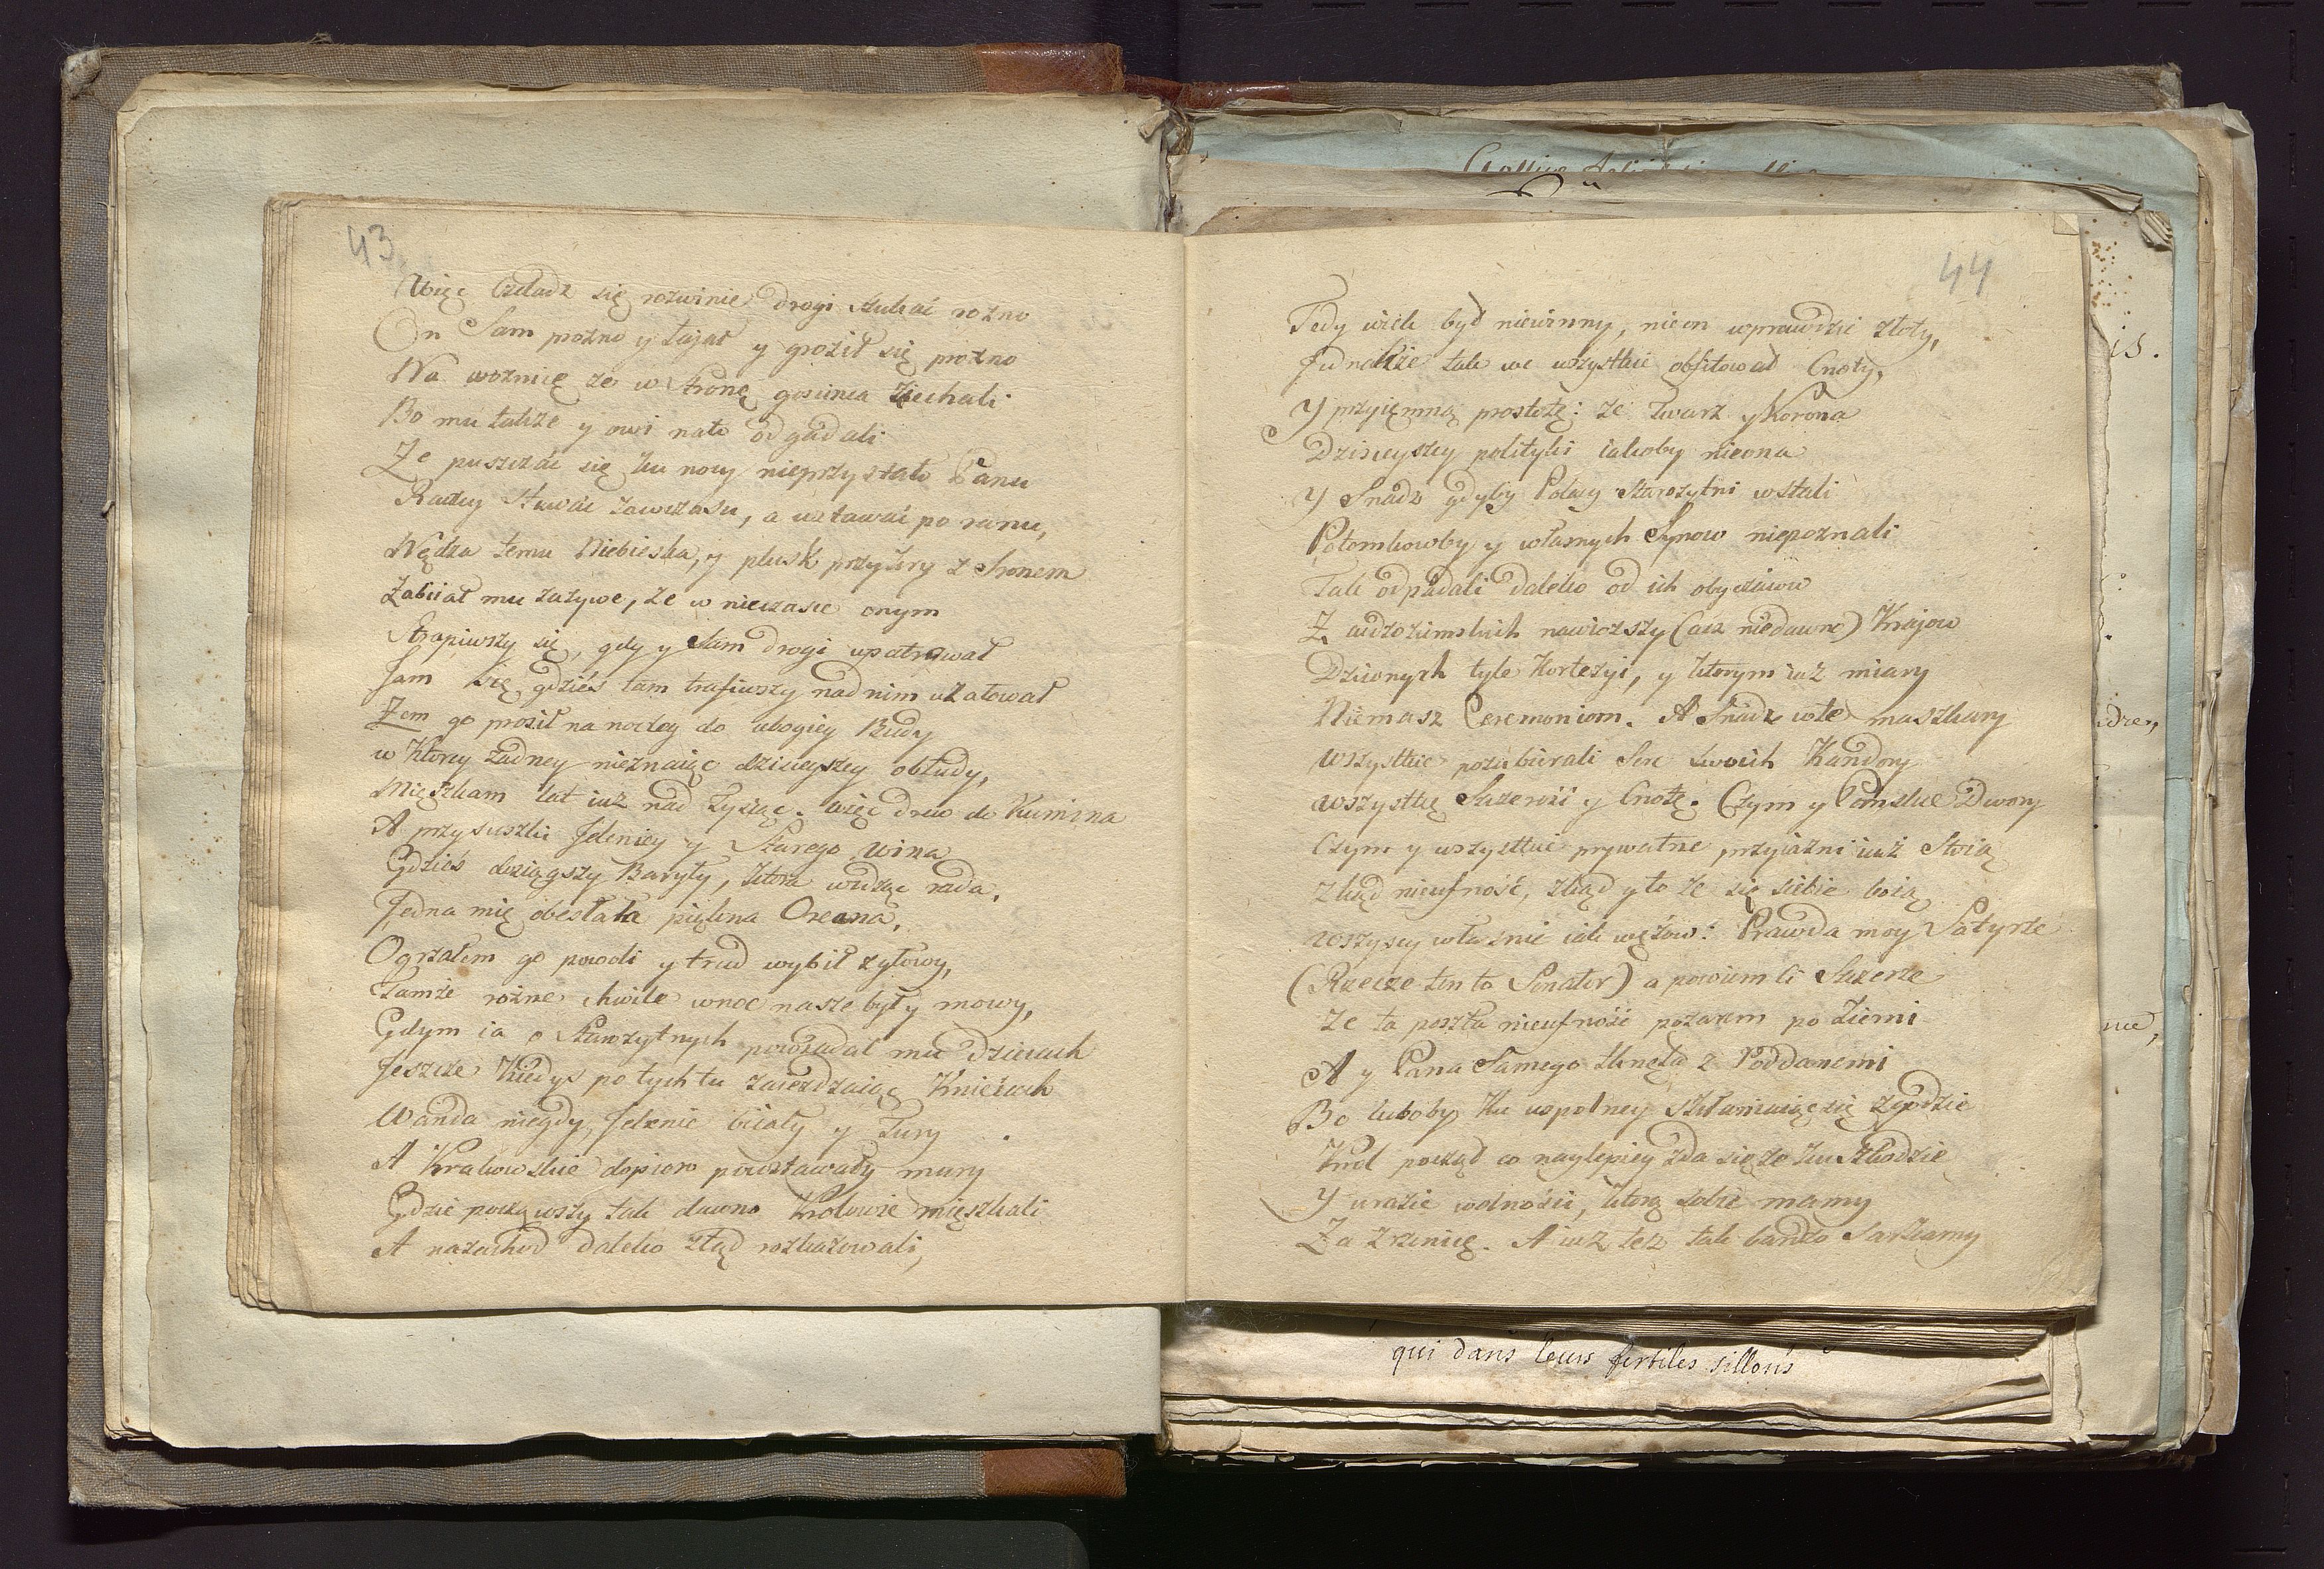 43
Więc Czeladz się rozwinie drogi szukać rozno
On Sam prozno y łajał y groził się prozno
Na woznicę ze w stronę gosinca ziechali
Bo mu takze y owi nato odgadali
Ze puszczać się ku nocy nieprzystało Panu
Raczey stawać zawczasu, a wstawać po ranu,
Nędza temu Niebieska, y plusk przykry z śronem
Zabiiał mu zazywe, ze w nieczasie onym
Strapiwszy się, gdy y Sam drogi upatrował
Jam się gdzies tam trafiwszy nad nim użatował
Zem go prosił na nocleg do ubogiey Budy
w Ktorey żadney nieznaiąc dzisieyszey obłudy,
Mięszkam lat iuż nad Tysiąc. więc drew do Kumina
A przysuszki Jeleniey y Starego wina
Gdzieś dosiągszy Baryły, ktora widząc rada,
Jedna mię obesłała piękna Oreana,
Ogrzałem go powoli y trud wybił zyłowy,
Tamże rożne chwile wnoc nasze były mowy,
Gdym ia o Starozytnych powiadał mu Dzieiach
Jeszcze Kiedys po tych tu zaiezdzaiąc Knieiach
Wanda niegdy, Jelenie biiały y Tury
A Krakowskie dopiero powstawały mury
Gdzie począwszy tak dawno Krolowie mięszkali
A nazachod daleko ztąd rozkazowali,
44
Tedy wiek był niewinny, nieon wprawdzie złoty,
Jednakże tak we wszystkie obfitował Cnoty,
Y przyięmną prostotę: ze twarz y Korona
Dzisieyszey polityki iakoby nieona
Y Snadz gdyby Polacy Starozytni wstali
Potomkowby y własnych Synow niepoznali
Tak odpadali daleko od ich obyczaiow
Z cudzoziemskich nawiozszy (acz niedawno) Krajow
Dziwnych tyle Kortezyi, y ktorym iuż miary
Niemasz Ceremoniom. A Snadz wte maszkary
Wszystkie pozabierali Serc swoich Kandory
wszystkę Szczerość y Cnotę. Czym y Pańskie Dwory
Czym y wszystkie prywatne przyiaźni iuż Stoią
Zkąd nieufność, zkąd y to ze się siebie boią
wszyscy własnie iak wężow: Prawda moy Satyrze
(Rzecze ten to Senator) a powiem ci Szczerze
Ze ta poszła nieufność pożarem po Ziemi
A y Pana Samego tknęła z Poddanemi
Bo lukoby ku wspolney skłaniaiąc się zgodzie
Krol począł co naylepiey zda się ze ku Szkodzie
Y urazie wolności, ktorą sobie mamy
Za Zrzenicę. A iuż tez tak bardzo Sarkamy
qui dans leurs fertiles sillons